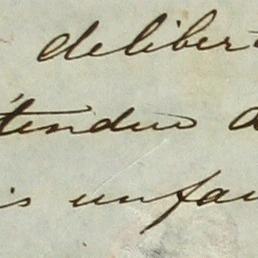 deliber
tendue a
is unfau